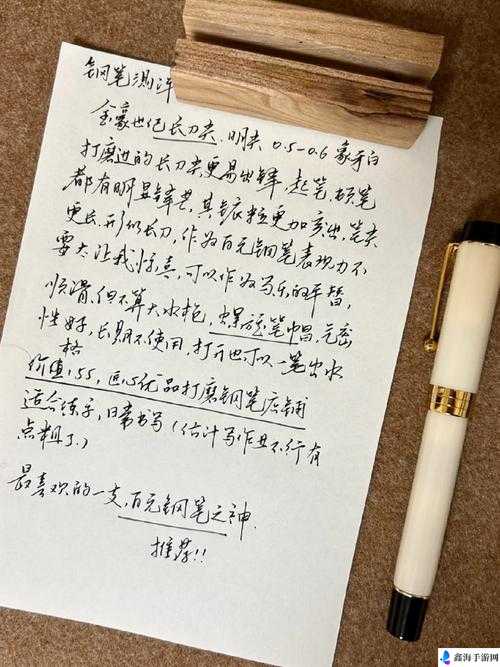 钢笔测评
金豪世纪长刀尖.明尖 0.5-0.6 象牙白
打磨过的长刀尖更易出锋,起笔.顿笔
都有明显锋芒,其铱粒更加突出,笔尖
更长.形似长刀,作为百元钢笔表现力不
要太让我惊喜,可以作为写乐的平替,
顺滑.但不算大水枪,螺旋笔帽.气密
性好,长期不使用,打开也可以一笔出水
价格值:55,匠心优品打磨钢笔店铺
适合练字,日常书写(估计写作业不行有
点粗了.)
最喜欢的一支,百元钢笔之神.
推荐!!
鑫海手游网